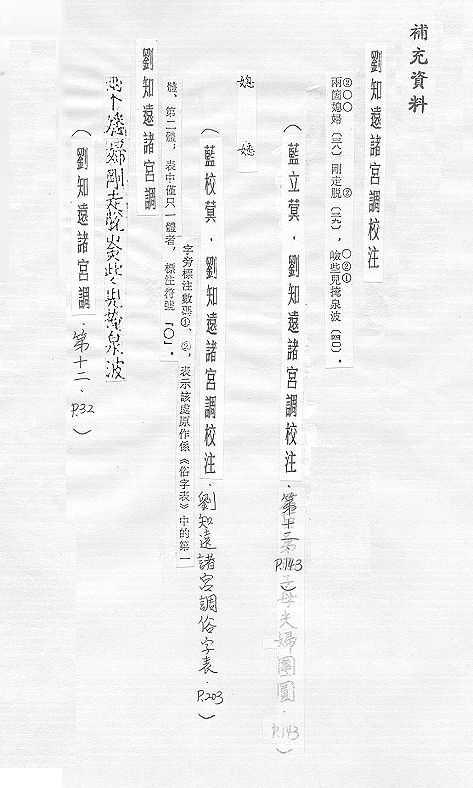 補充資料
劉知遠諸宮調校注
②〇〇 ② 〇②①
兩箇媳婦〔三六〕剛定脫〔三九〕，嶮些兒掩泉波〔四〇〕。
（藍立蓂．劉知遠諸宮調校注．第十二
P.143）
子母夫婦團圓．P.143）
媳
（藍校蓂．劉知遠諸宮調校注．劉知遠諸宮調俗字表．P.203）
字旁標注數碼①、②，表示該處原作係《俗字表》中的第一
體、第二體，表中僅只一體者，標注符號「〇」。
劉知遠諸宮調
婦剛走脫災些兒掩泉波
（劉知遠諸宮調．第十二．P.32）